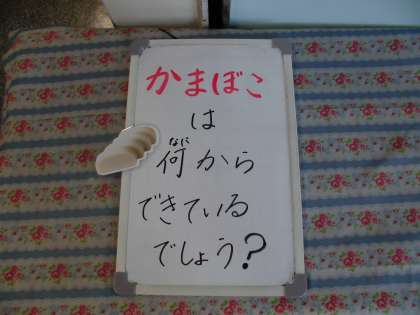 かまぼこ
は
なに
何から
できている
でしょう?